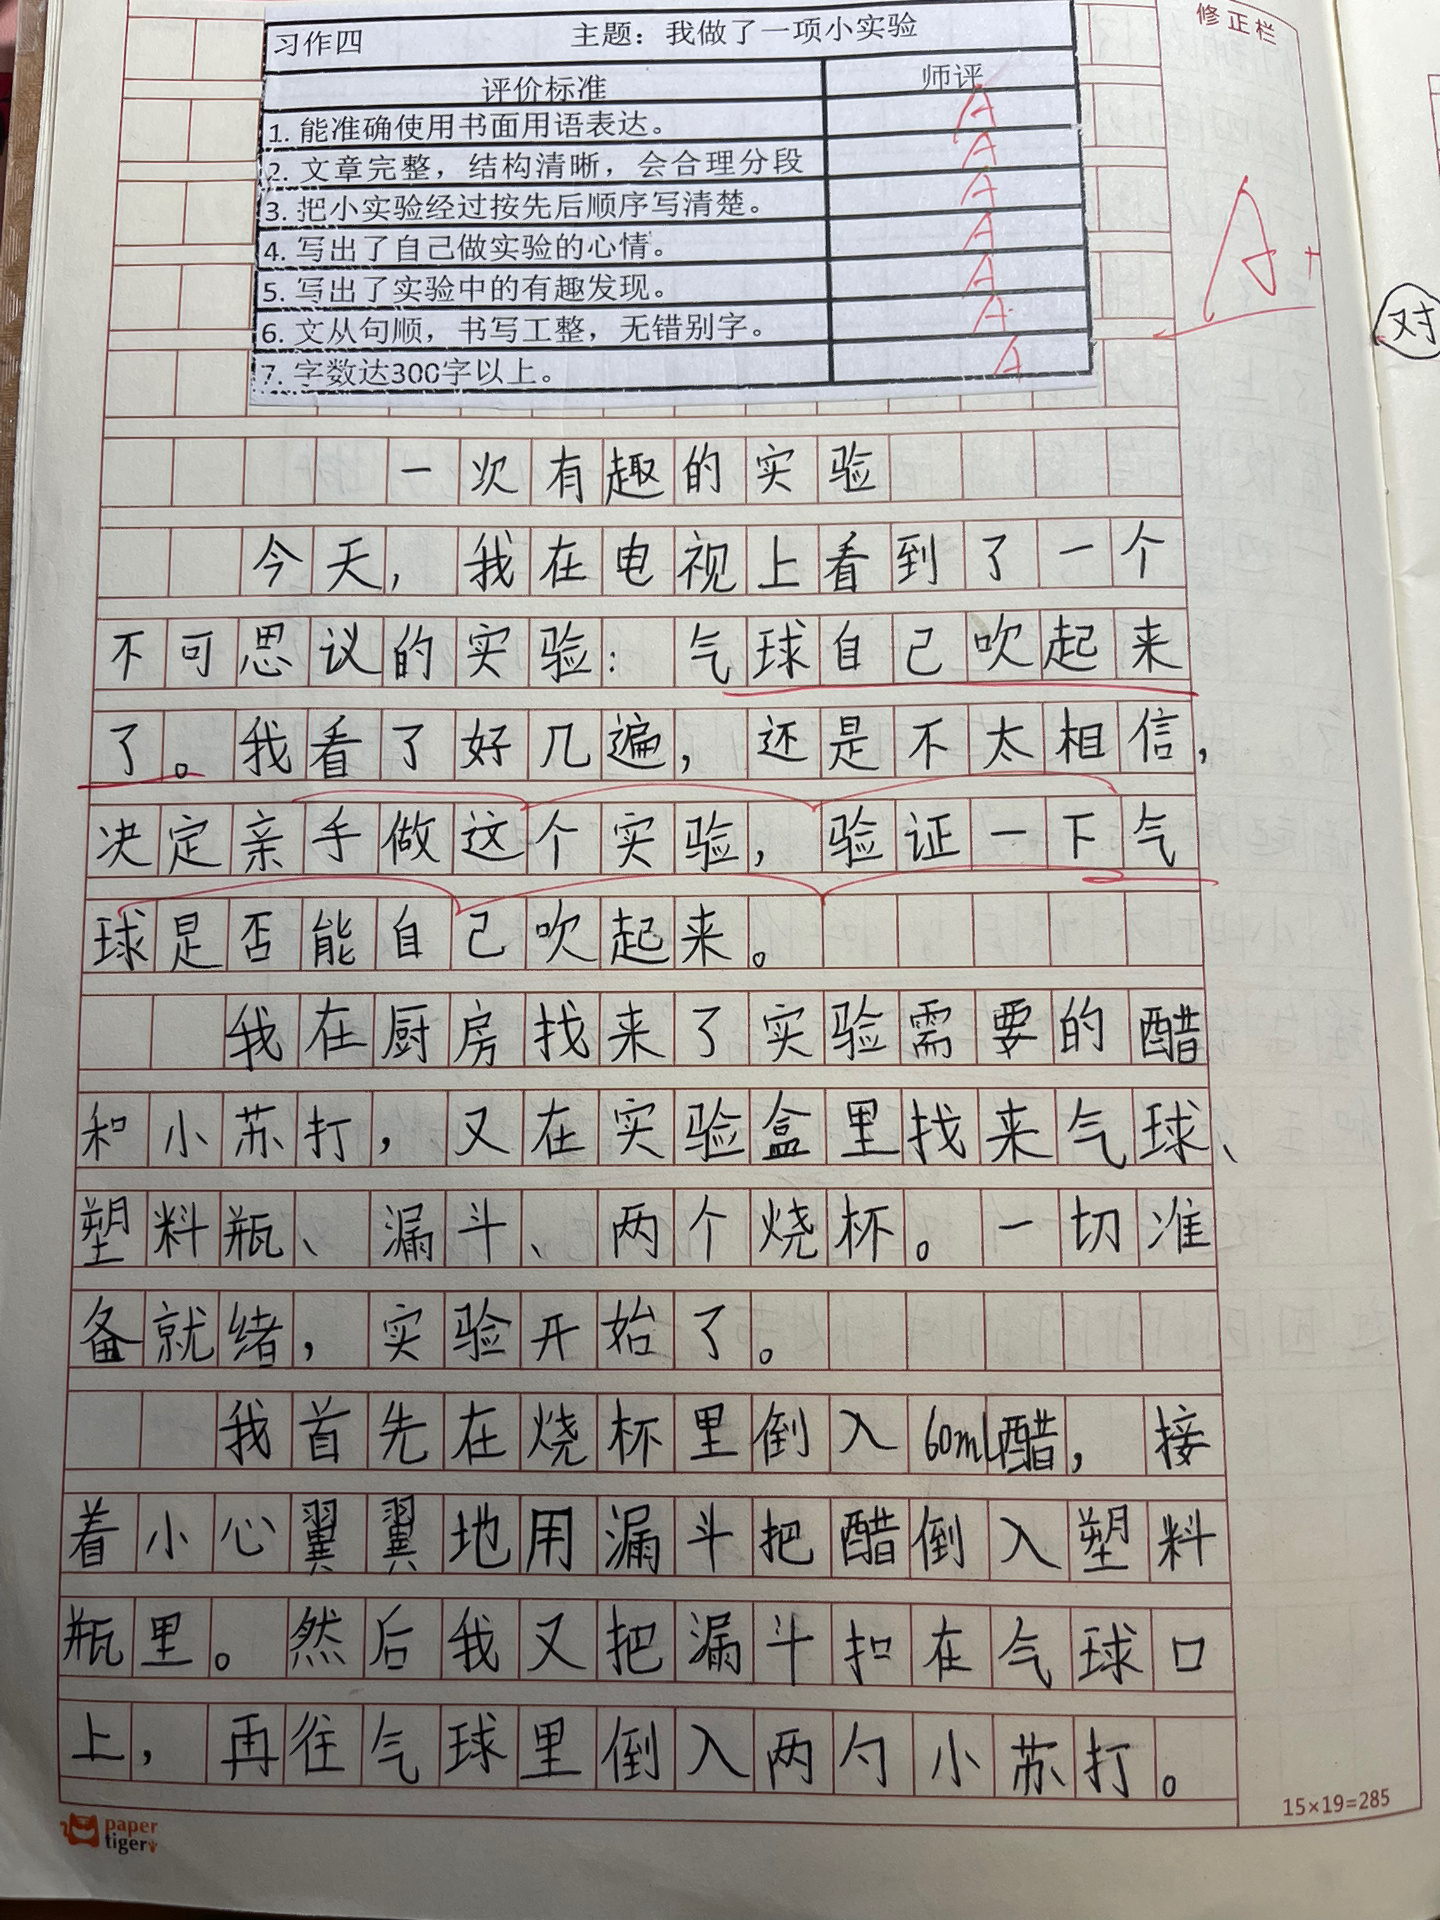 修正栏
习作四 主题：我做了一项小实验
评价标准 师评
1. 能准确使用书面用语表达。 A
2. 文章完整，结构清晰，会合理分段 A
3. 把小实验经过按先后顺序写清楚。 A
4. 写出了自己做实验的心情。 A
5. 写出了实验中的有趣发现。 A
6. 文从句顺，书写工整，无错别字。 A
7. 字数达300字以上。 A
A+
对
一次有趣的实验
今天，我在电视上看到了一个
不可思议的实验：气球自己吹起来
了。我看了好几遍，还是不太相信，
决定亲手做这个实验，验证一下气
球是否能自己吹起来。
我在厨房找来了实验需要的醋
和小苏打，又在实验盒里找来气球、
塑料瓶、漏斗、两个烧杯。一切准
备就绪，实验开始了。
我首先在烧杯里倒入60ml醋，接
着小心翼翼地用漏斗把醋倒入塑料
瓶里。然后我又把漏斗扣在气球口
上，再往气球里倒入两勺小苏打。
15×19=285
paper
tiger